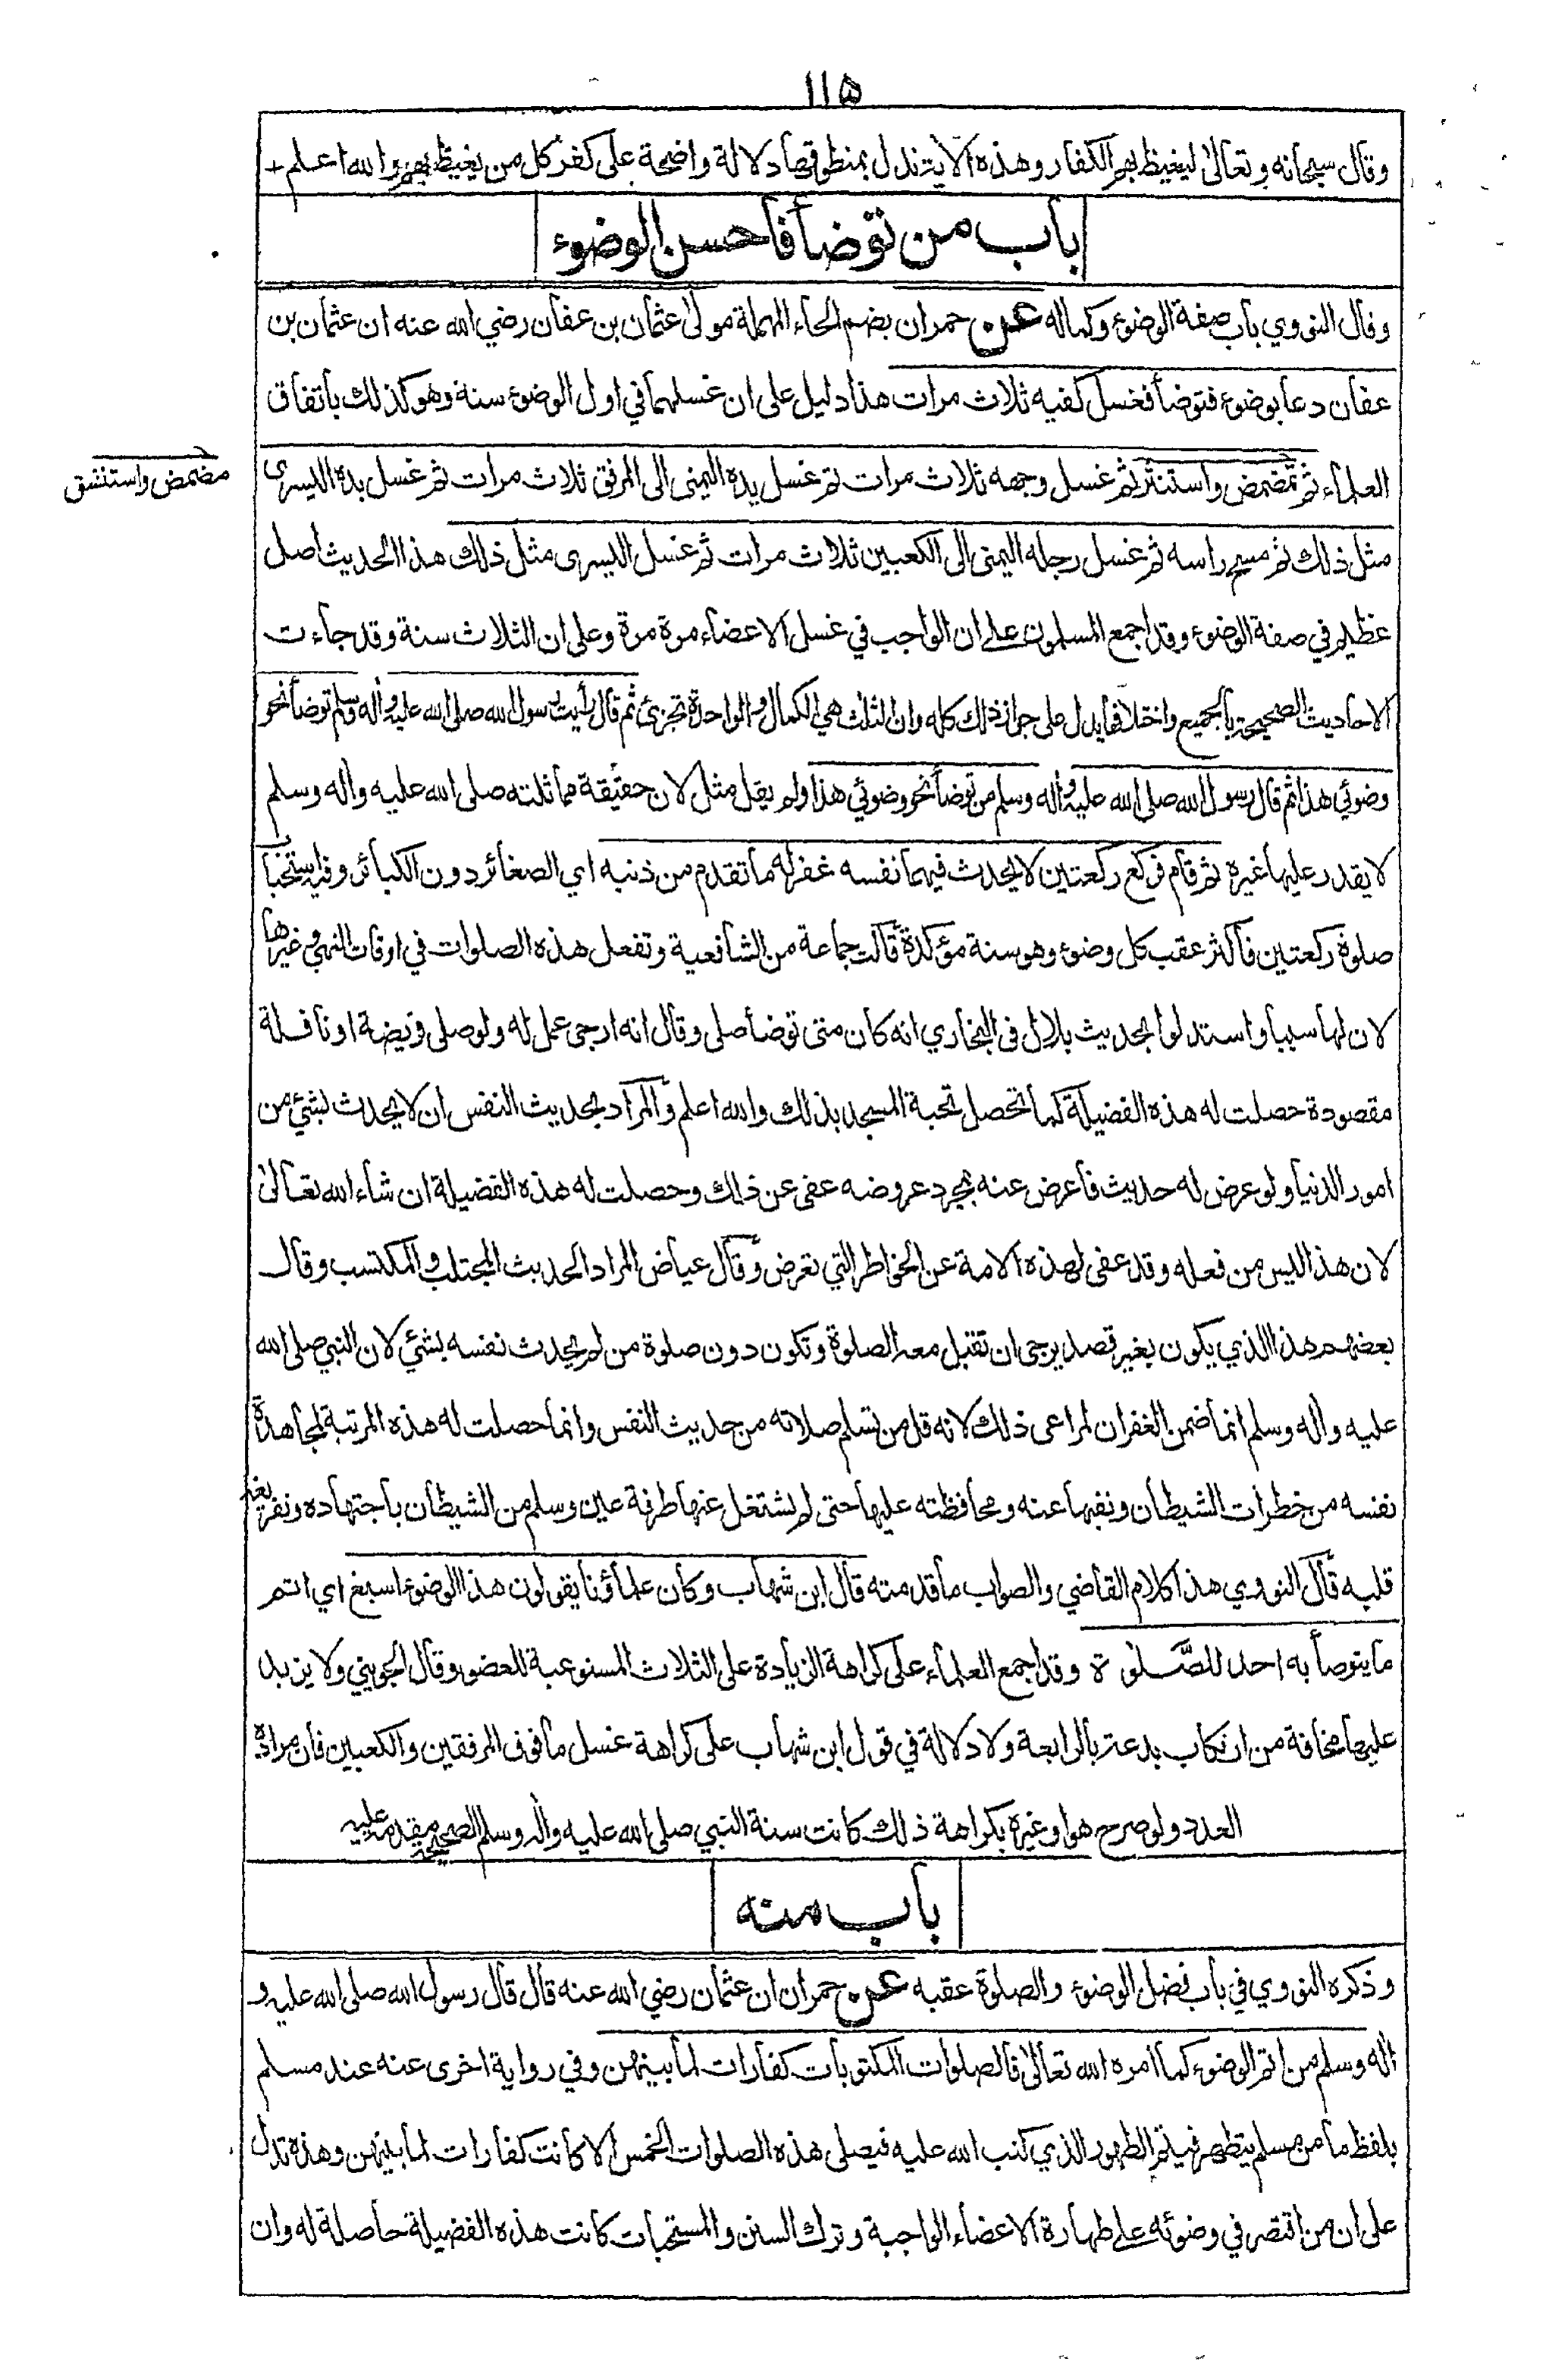 ١١٥
وقال سبحانه وتعالى ليغيظ بهم الكفار وهذه الاية تدل بمنطوقها دلالة واضحة على كفر كل من يغيظ بهم والله اعلم
باب من توضأ فأحسن الوضوء
وقال النووي باب صفة الوضوء وكماله عن حمران بضم الحاء المهملة مولى عثمان بن عفان رضي الله عنه ان عثمان بن
عفان دعا بوضوء فتوضأ فغسل كفيه ثلاث مرات هذا دليل على ان غسلهما في اول الوضوء سنة وهو كذلك باتفاق
العلماء ثم تمضمض واستنثر ثم غسل وجهه ثلاث مرات ثم غسل يده اليمنى الى المرفق ثلاث مرات ثم غسل يده اليسرى
مضمض واستنشق
مثل ذلك ثم مسح راسه ثم غسل رجله اليمنى الى الكعبين ثلاث مرات ثم غسل اليسرى مثل ذلك هذا الحديث اصل
عظيم في صفة الوضوء وقد اجمع المسلمون على ان الواجب في غسل الاعضاء مرة مرة وعلى ان الثلاث سنة وقد جاءت
الاحاديث الصحيحة بالجميع واختلافها يدل على جواز ذلك كله وان الثلث هي الكمال والواحدة تجزئ ثم قال رأيت رسول الله صلى الله عليه وآله وسلم توضأ نحو
وضوئي هذا ثم قال رسول الله صلى الله عليه وآله وسلم من توضأ نحو وضوئي هذا ولم يقل مثل لان حقيقة مماثلته صلى الله عليه وآله وسلم
لا يقدر عليها غيره ثم قام فركع ركعتين لا يحدث فيهما نفسه غفر له ما تقدم من ذنبه اي الصغائر دون الكبائر وفيه استحباب
صلوة ركعتين فأكثر عقب كل وضوء وهو سنة مؤكدة قالت جماعة من الشافعية وتفعل هذه الصلوات في اوقات النهي وغيرها
لان لها سببا واستدلوا بحديث بلال في البخاري انه كان متى توضأ صلى وقال انه ارجى عمل له ولو صلى فريضة او نافلة
مقصودة حصلت له هذه الفضيلة كما تحصل تحية المسجد بذلك والله اعلم والمراد بحديث النفس ان لا يحدث بشئ من
امور الدنيا ولو عرض له حديث فأعرض عنه بمجرد عروضه عفى عن ذلك وحصلت له هذه الفضيلة ان شاء الله تعالى
لان هذا ليس من فعله وقد عفى لهذه الامة عن الخواطر التي تعرض وقال عياض المراد الحديث المجتلب والمكتسب وقال
بعضهم هذا الذي يكون بغير قصد يرجى ان تقبل معه الصلوة وتكون دون صلوة من لم يحدث نفسه بشئ لان النبي صلى الله
عليه وآله وسلم انما ضمن الغفران لمراعى ذلك لانه قل من تسلم صلاته من حديث النفس وانما حصلت له هذه المرتبة لمجاهدة
نفسه من خطرات الشيطان ونفيها عنه ومحافظته عليها حتى لم يشتغل عنها طرفة عين وسلم من الشيطان باجتهاده وتفريغه
قلبه قال النووي هذا كلام القاضي والصواب ما قدمته قال ابن شهاب وكان علماؤنا يقولون هذا الوضوء اسبغ اي اتم
ما يتوضأ به احد للصَّلٰوة وقد اجمع العلماء على كراهة الزيادة على الثلاث المستوعبة للعضو وقال الجويني ولا يزيد
عليها مخافة من ارتكاب بدعة بالرابعة ولا دلالة في قول ابن شهاب على كراهة غسل ما فوق المرفقين والكعبين فان مراده
العدد ولو صرح هو او غيره بكراهة ذلك كانت سنة النبي صلى الله عليه وآله وسلم الصحيحة مقدمة عليه
باب منه
وذكره النووي في باب فضل الوضوء والصلوة عقبه عن حمران ان عثمان رضي الله عنه قال قال رسول الله صلى الله عليه و
آله وسلم من اتم الوضوء كما امره الله تعالى فالصلوات المكتوبات كفارات لما بينهن وفي رواية اخرى عنه عند مسلم
بلفظ ما من مسلم يتطهر فيتم الطهور الذي كتب الله عليه فيصلى هذه الصلوات الخمس الا كانت كفارات لما بينهن وهذه تدل
على ان من اقتصر في وضوئه على طهارة الاعضاء الواجبة وترك السنن والمستحبات كانت هذه الفضيلة حاصلة له وان